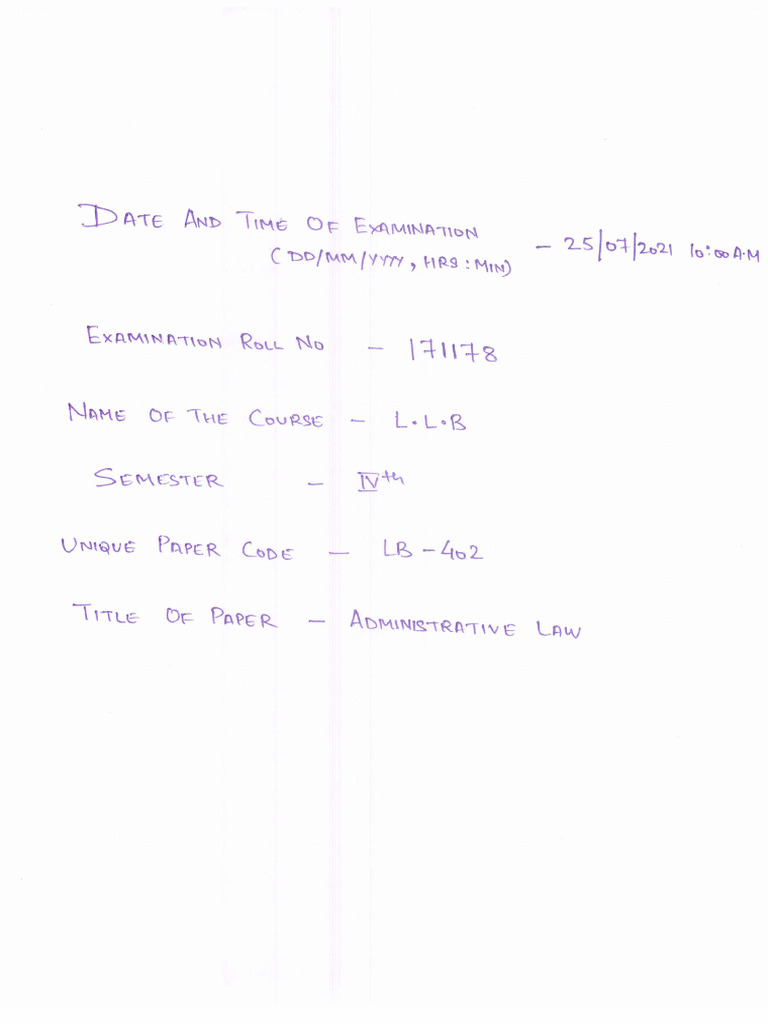 DATE AND TIME OF EXAMINATION
(DD/MM/YYYY, HRS:MIN) - 25/07/2021 10:00 A.M
EXAMINATION ROLL NO - 171178
NAME OF THE COURSE - L.L.B
SEMESTER - IVth
UNIQUE PAPER CODE - LB-402
TITLE OF PAPER - ADMINISTRATIVE LAW